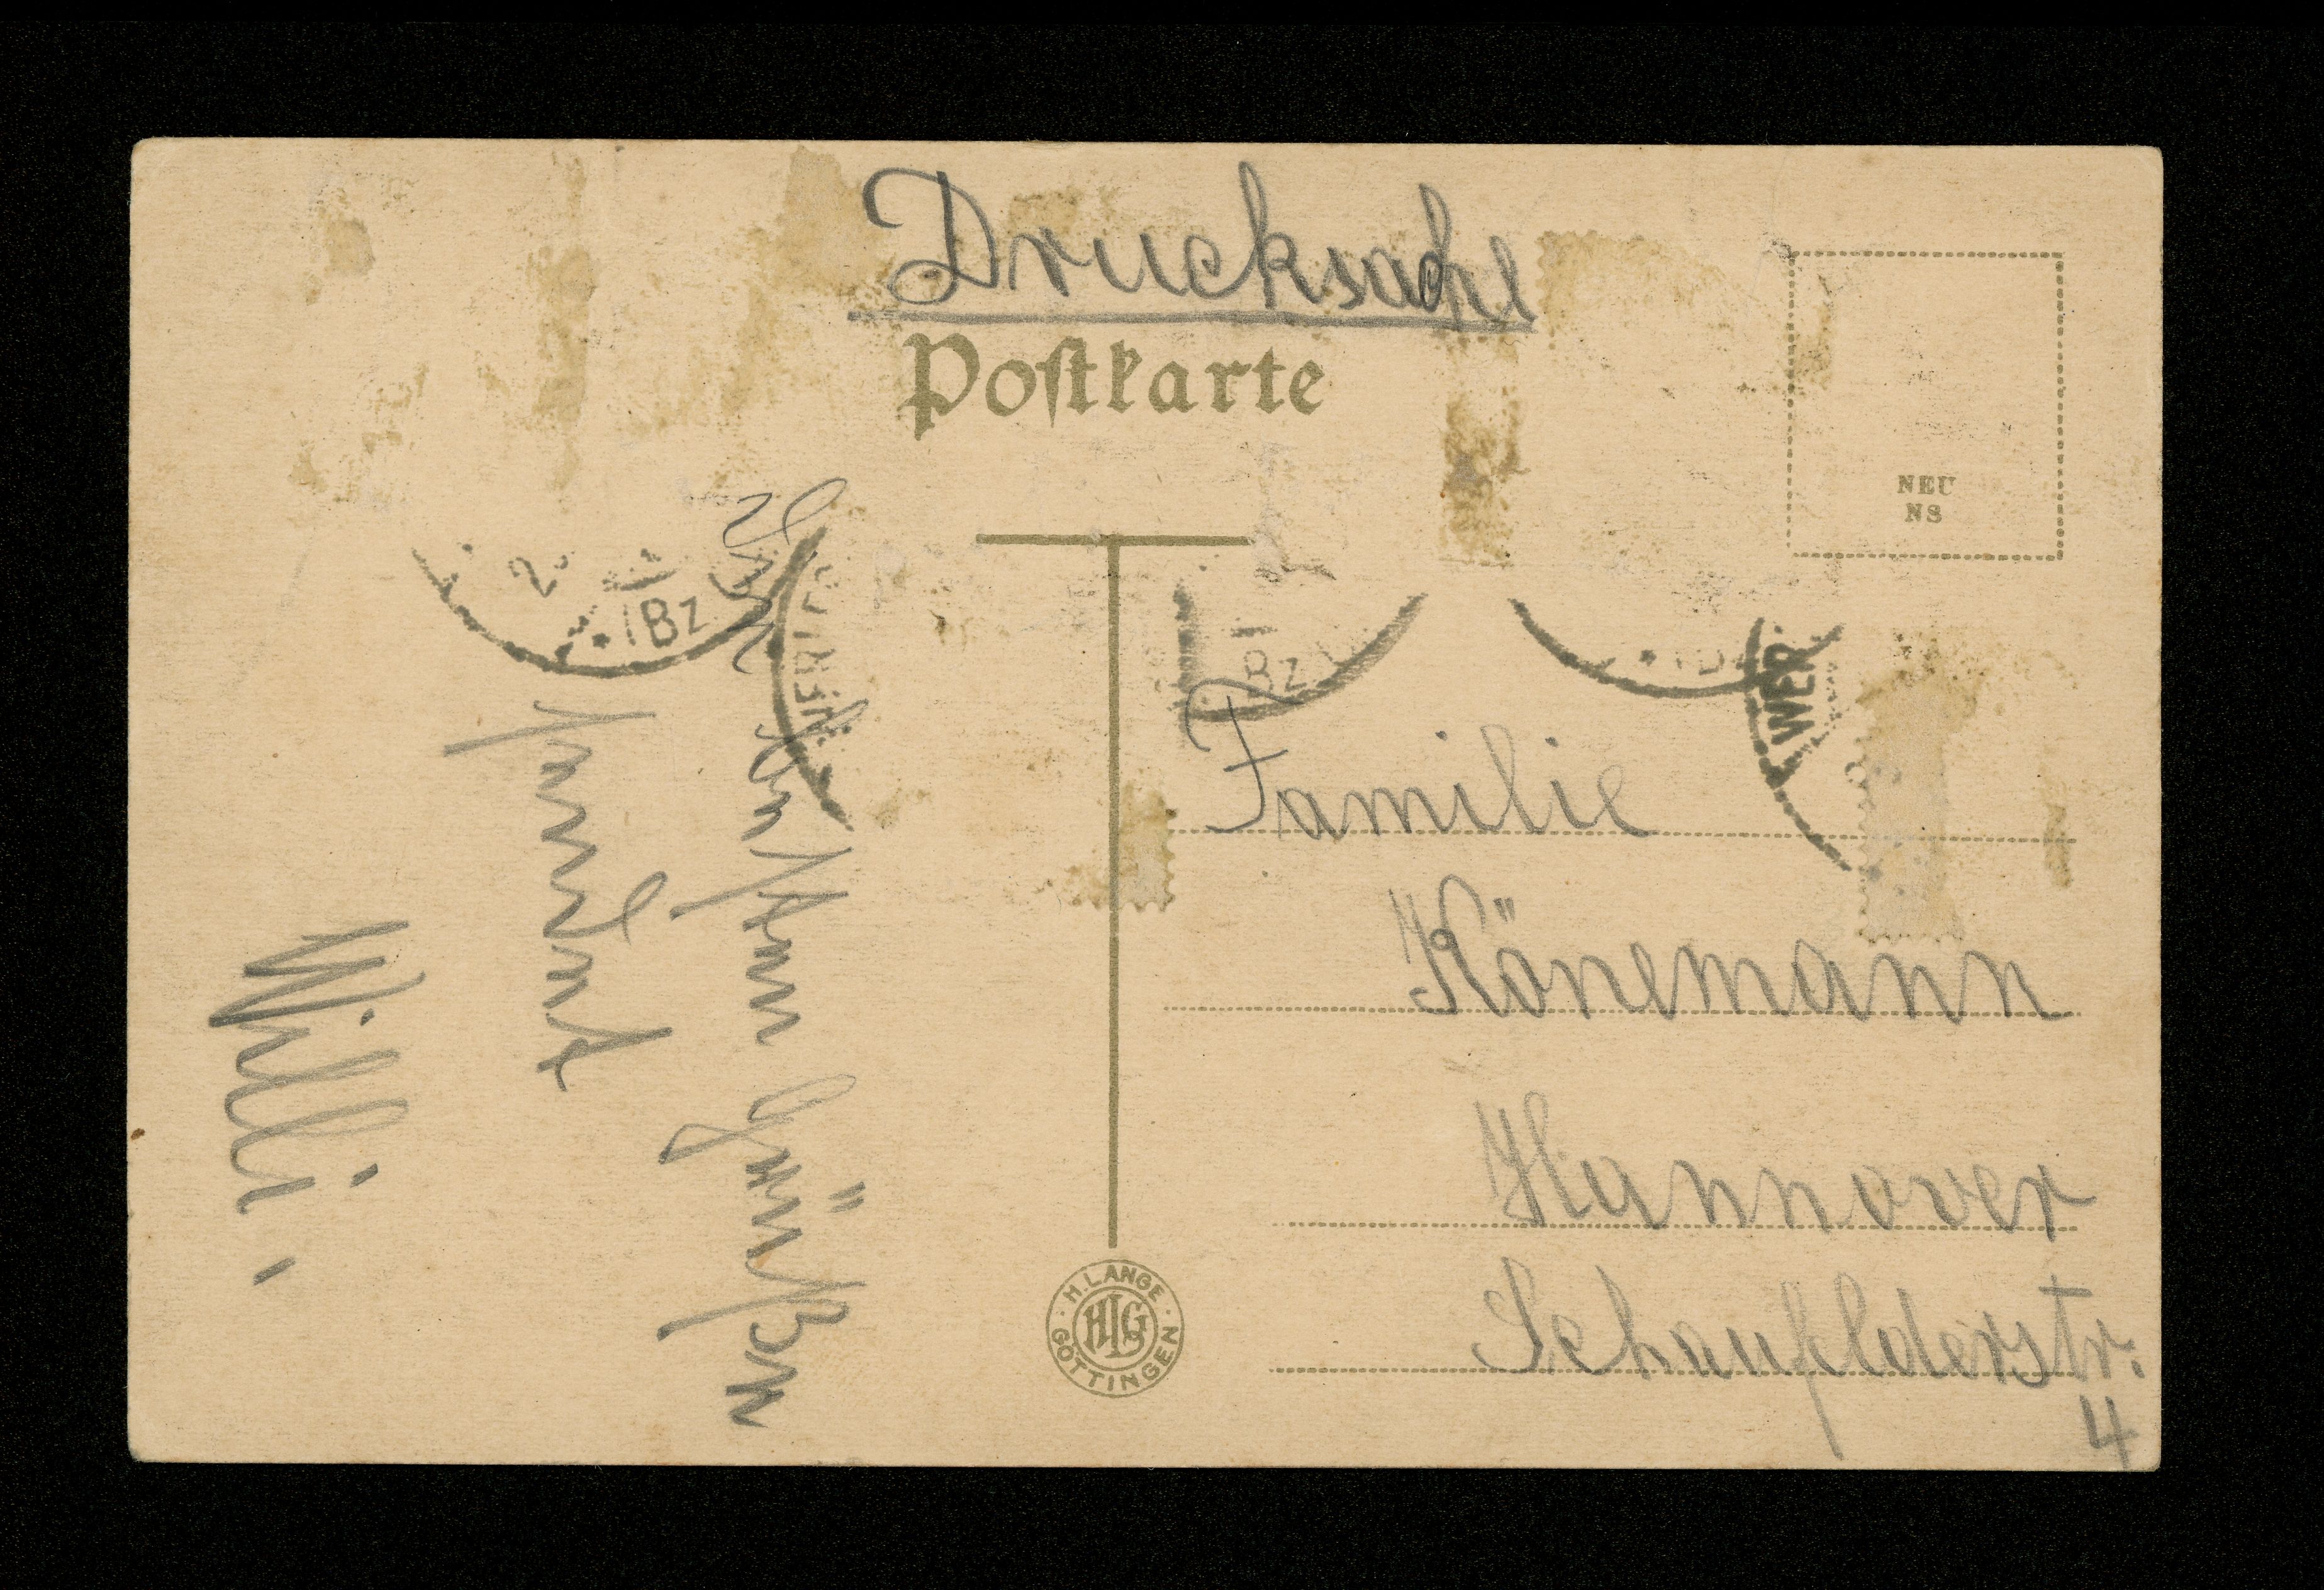 Drucksache
Postkarte
NEU
NS
2.
Bz
Bz
WER
Familie
Könemann
Hannover
Schaufelderstr.
4
Die besten Grüßen
sendet
Willi.
H. LANGE
GÖTTINGEN
HLG